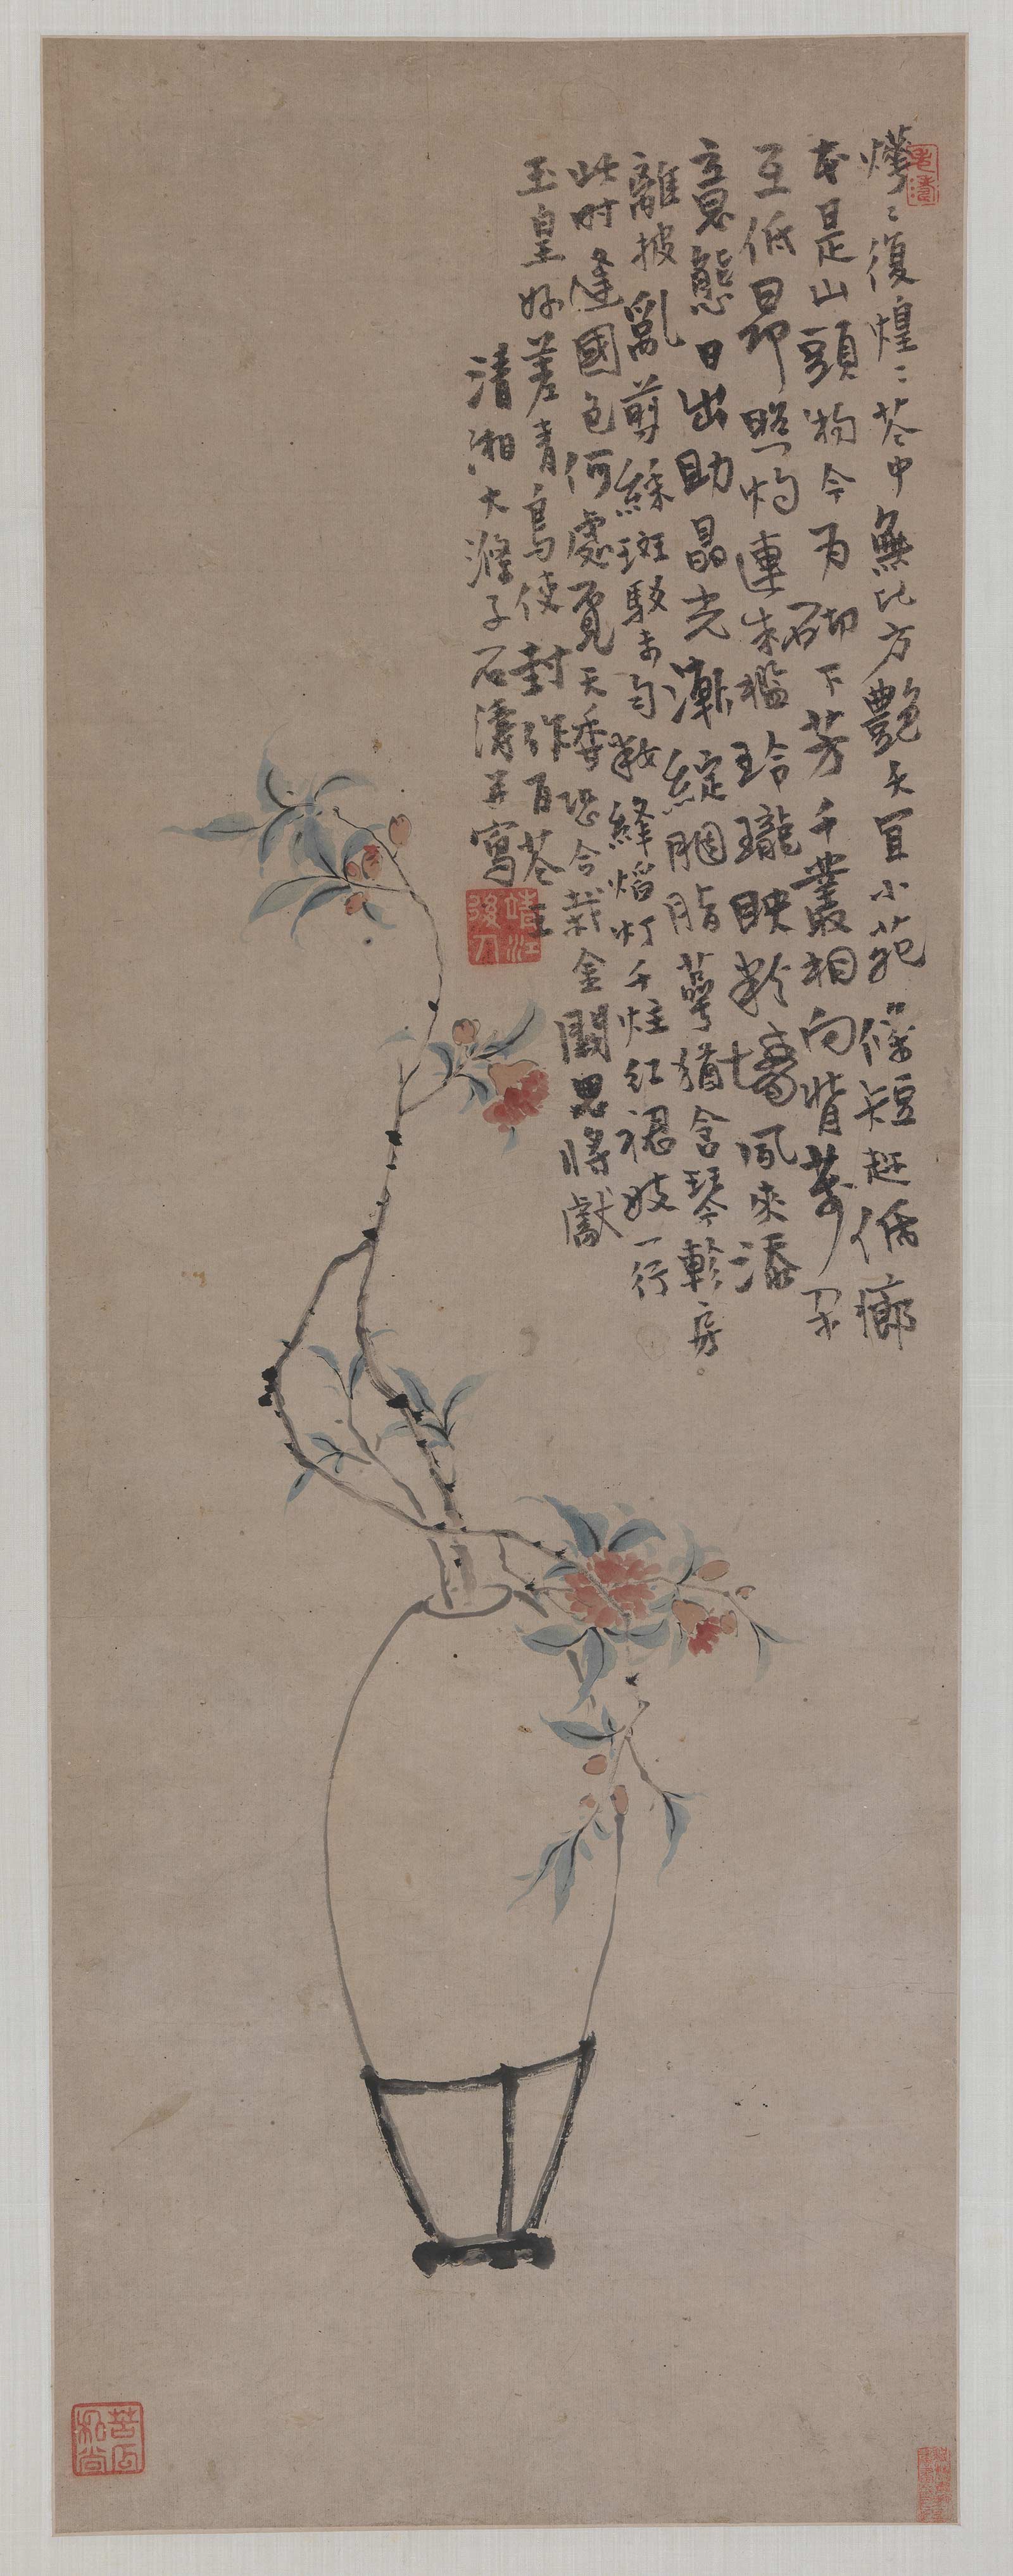 燁〻復煌〻花中無比方豔夭宜小苑條短低廊
本是山頭物今为砌下芳千叢相向背萬朵
互低昂照灼連朱檻玲瓏映粉墻風來添
意態日出助晶光漸綻胭脂萼猶含琴軫房
離披亂剪綵斑駁未勻妝絳焰灯千炷紅裙妓一行
此时逢國色何處覓天香恐合栽金闕思將獻
玉皇好差青鳥使封作百花王
清湘大滌子石濤并寫
靖江後人
苦瓜和尚